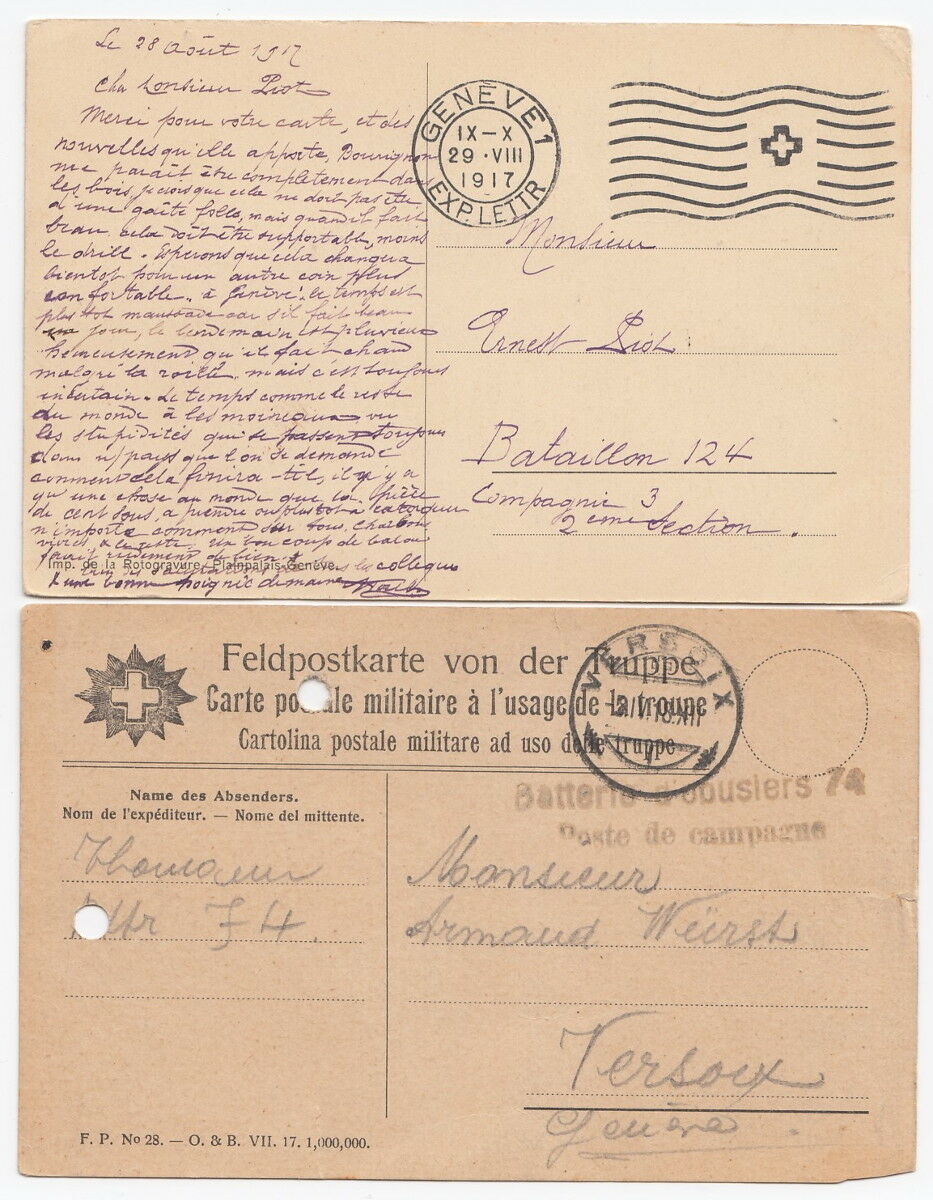 Le 28 Août 1917
Cher Monsieur Piot
Merci pour votre carte, et des
nouvelles qu'elle apporte, Bourrignon
me paraît être complètement dans
les bois, je crois que cela ne doit pas être
d'une gaîté folle, mais quand il fait
beau, cela doit être supportable, moins
le drill. Esperons que cela changera
bientot pour un autre coin plus
confortable. à Genève, le temps est
plus tot maussade car s'il fait beau
un jour, le lendemain est pluvieux
heureusement qu'il fait chaud
malgré la
mais c'est toujours
incertain. Le temps comme le reste
du monde à les moineaux vu
les stupidités qui se passent toujours
dans n/ pays que l'on se demande
comment cela finira-t-il, il n'y a
qu'une chose au monde que la pièce
de cent sous, a prendre ou plus tot a
n'importe comment sur tous, charbon
vivres & le reste. un bon coup de balai
ferait rudement de bien.
les collègues
& une bonne poignée de main
Imp. de la Rotogravure, Plainpalais-Genève.
GENÈVE 1
IX–X
29·VIII
1917
EXP. LETTR
Monsieur
Ernest Piot
Bataillon 124
Compagnie 3
2ème Section.
Feldpostkarte von der Truppe
Carte postale militaire à l'usage de la troupe
Cartolina postale militare ad uso delle truppe
VERSOIX
Batterie d'obusiers 74
Poste de campagne
Name des Absenders.
Nom de l'expéditeur. — Nome del mittente.
Thomann
74
Monsieur
Armand Würst
Versoix
Genève
F. P. No 28. — O. & B. VII. 17. 1,000,000.